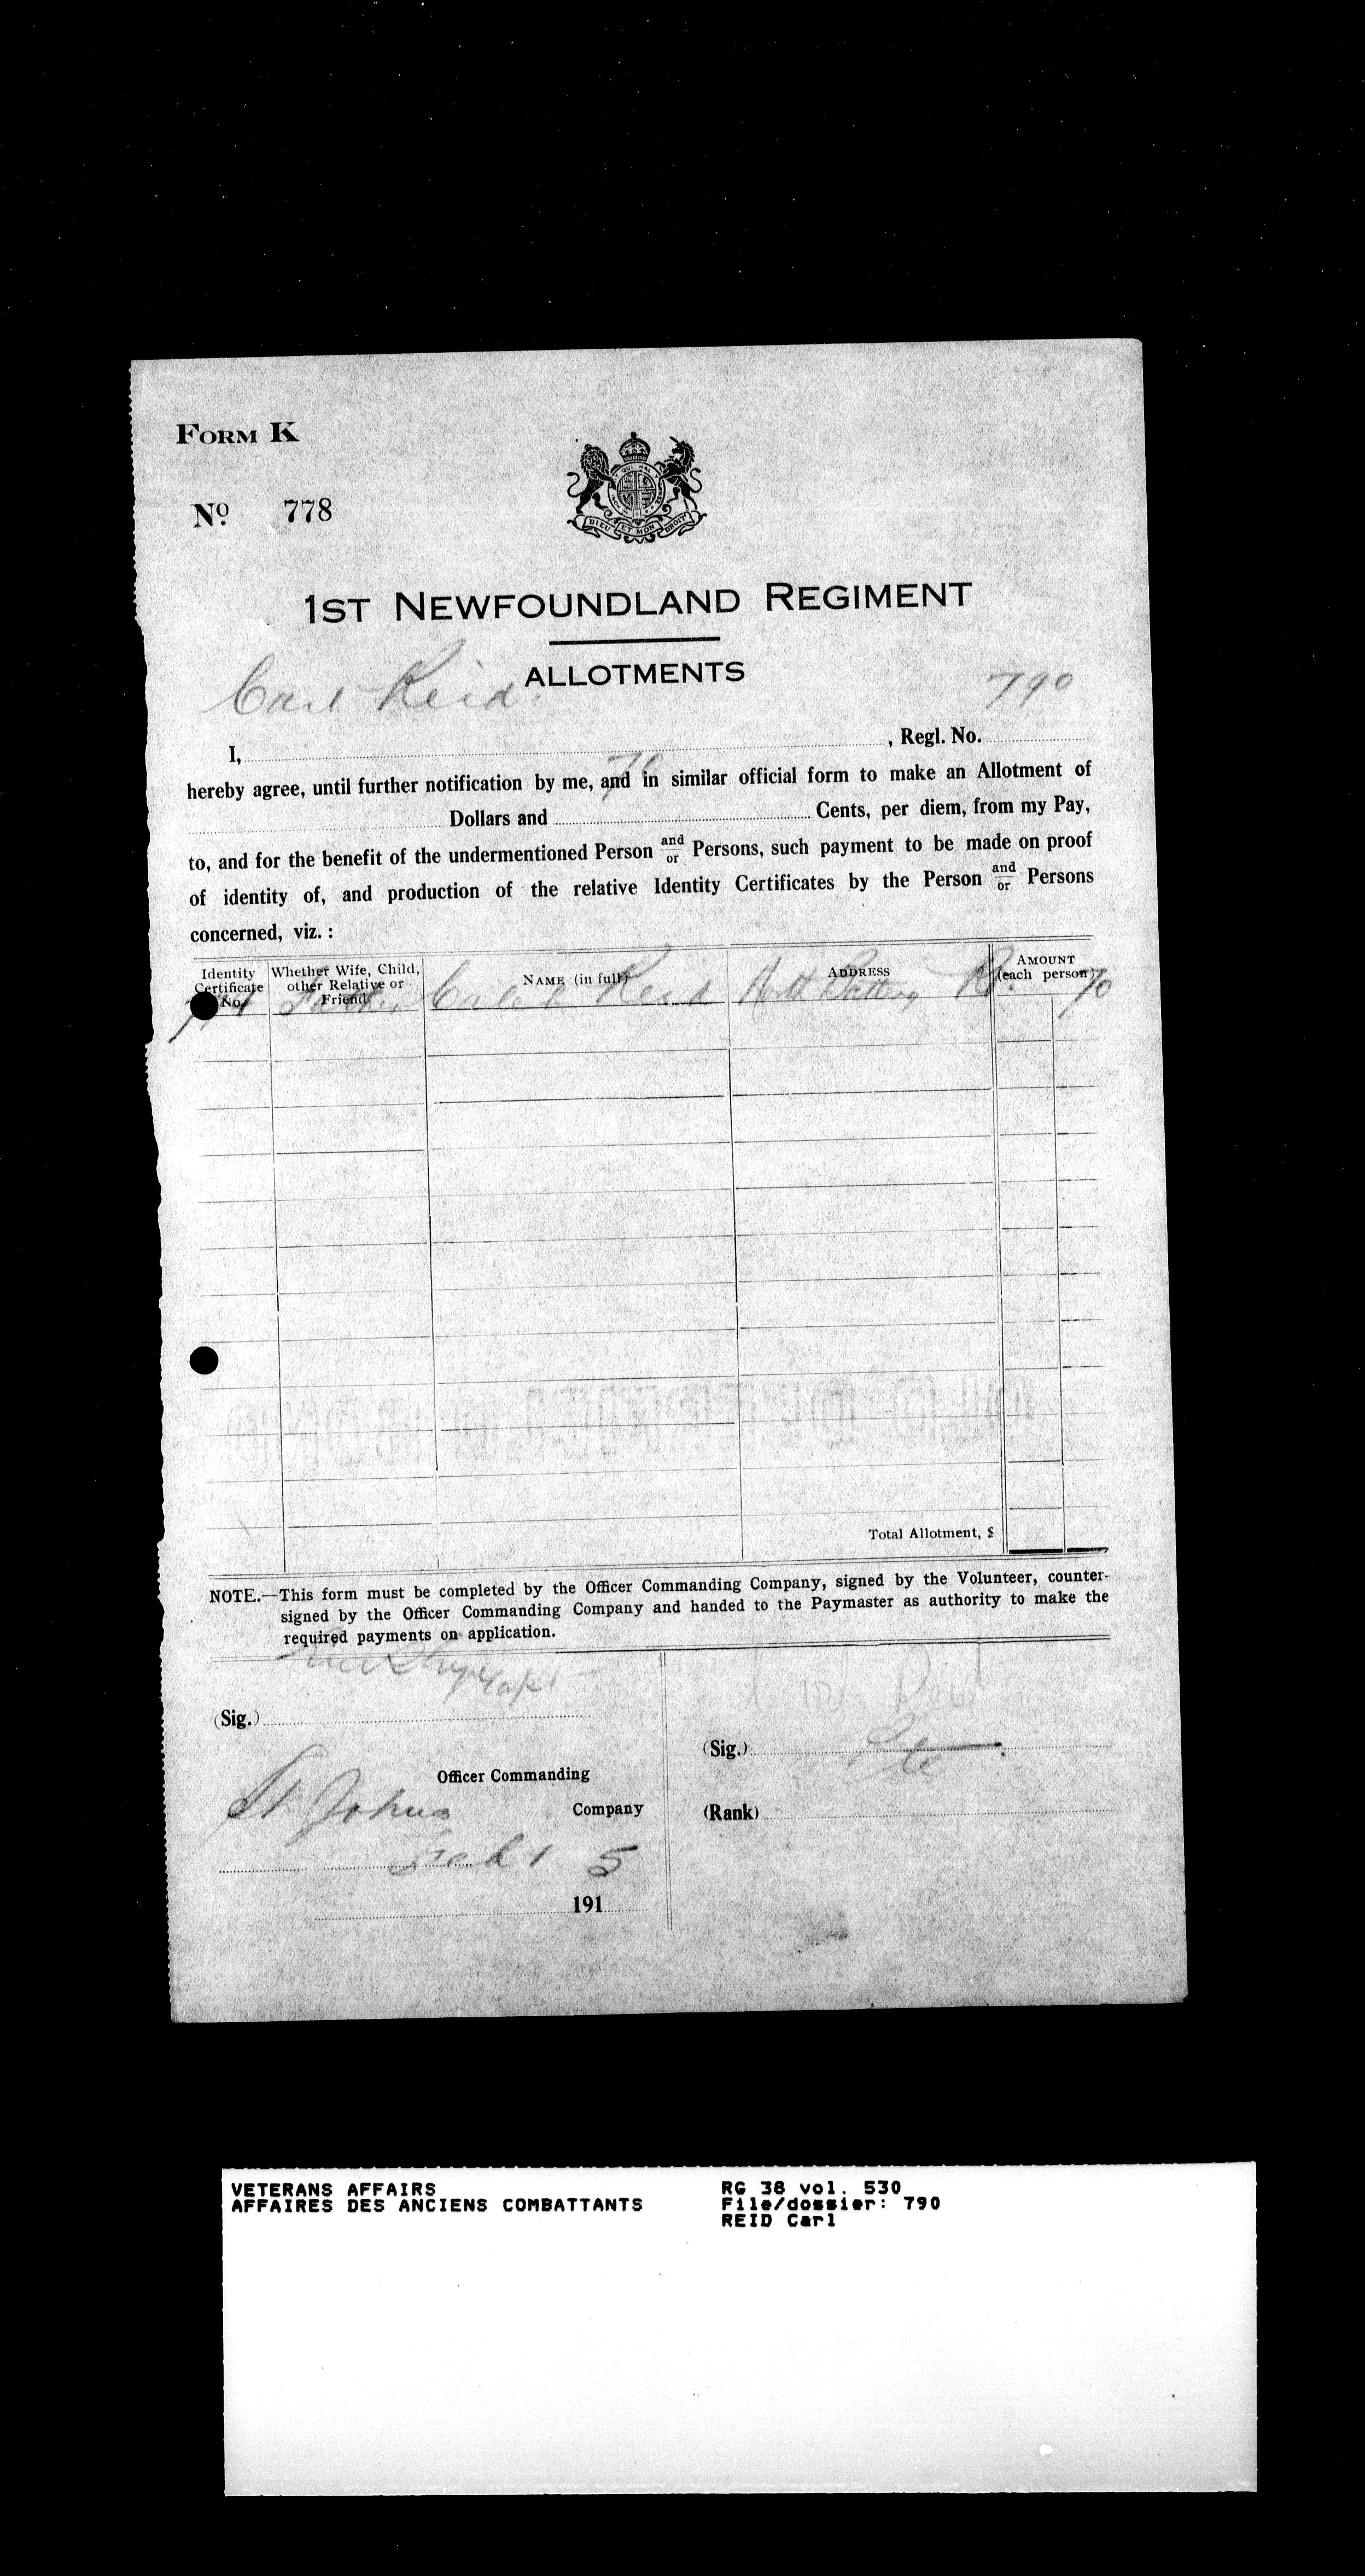 FORM K
No. 778
DIEU ET MON DROIT
1ST NEWFOUNDLAND REGIMENT
ALLOTMENTS
Carl Reid 790
I, , Regl. No.
70
hereby agree, until further notification by me, and in similar official form to make an Allotment of
Dollars and Cents, per diem, from my Pay,
to, and for the benefit of the undermentioned Person and/or Persons, such payment to be made on proof
of identity of, and production of the relative Identity Certificates by the Person and/or Persons
concerned, viz. :
Identity Certificate No. Whether Wife, Child, other Relative or Friend NAME (in full) ADDRESS AMOUNT (each person)
Father Reid Battery Rd. 70
Total Allotment, $
NOTE.—This form must be completed by the Officer Commanding Company, signed by the Volunteer, counter-
signed by the Officer Commanding Company and handed to the Paymaster as authority to make the
required payments on application.
Capt
Carl Reid
(Sig.)
(Sig.) Pte
Officer Commanding
St Johns Company
(Rank)
Feb 1 5
191
VETERANS AFFAIRS
AFFAIRES DES ANCIENS COMBATTANTS
RG 38 vol. 530
File/dossier: 790
REID Carl